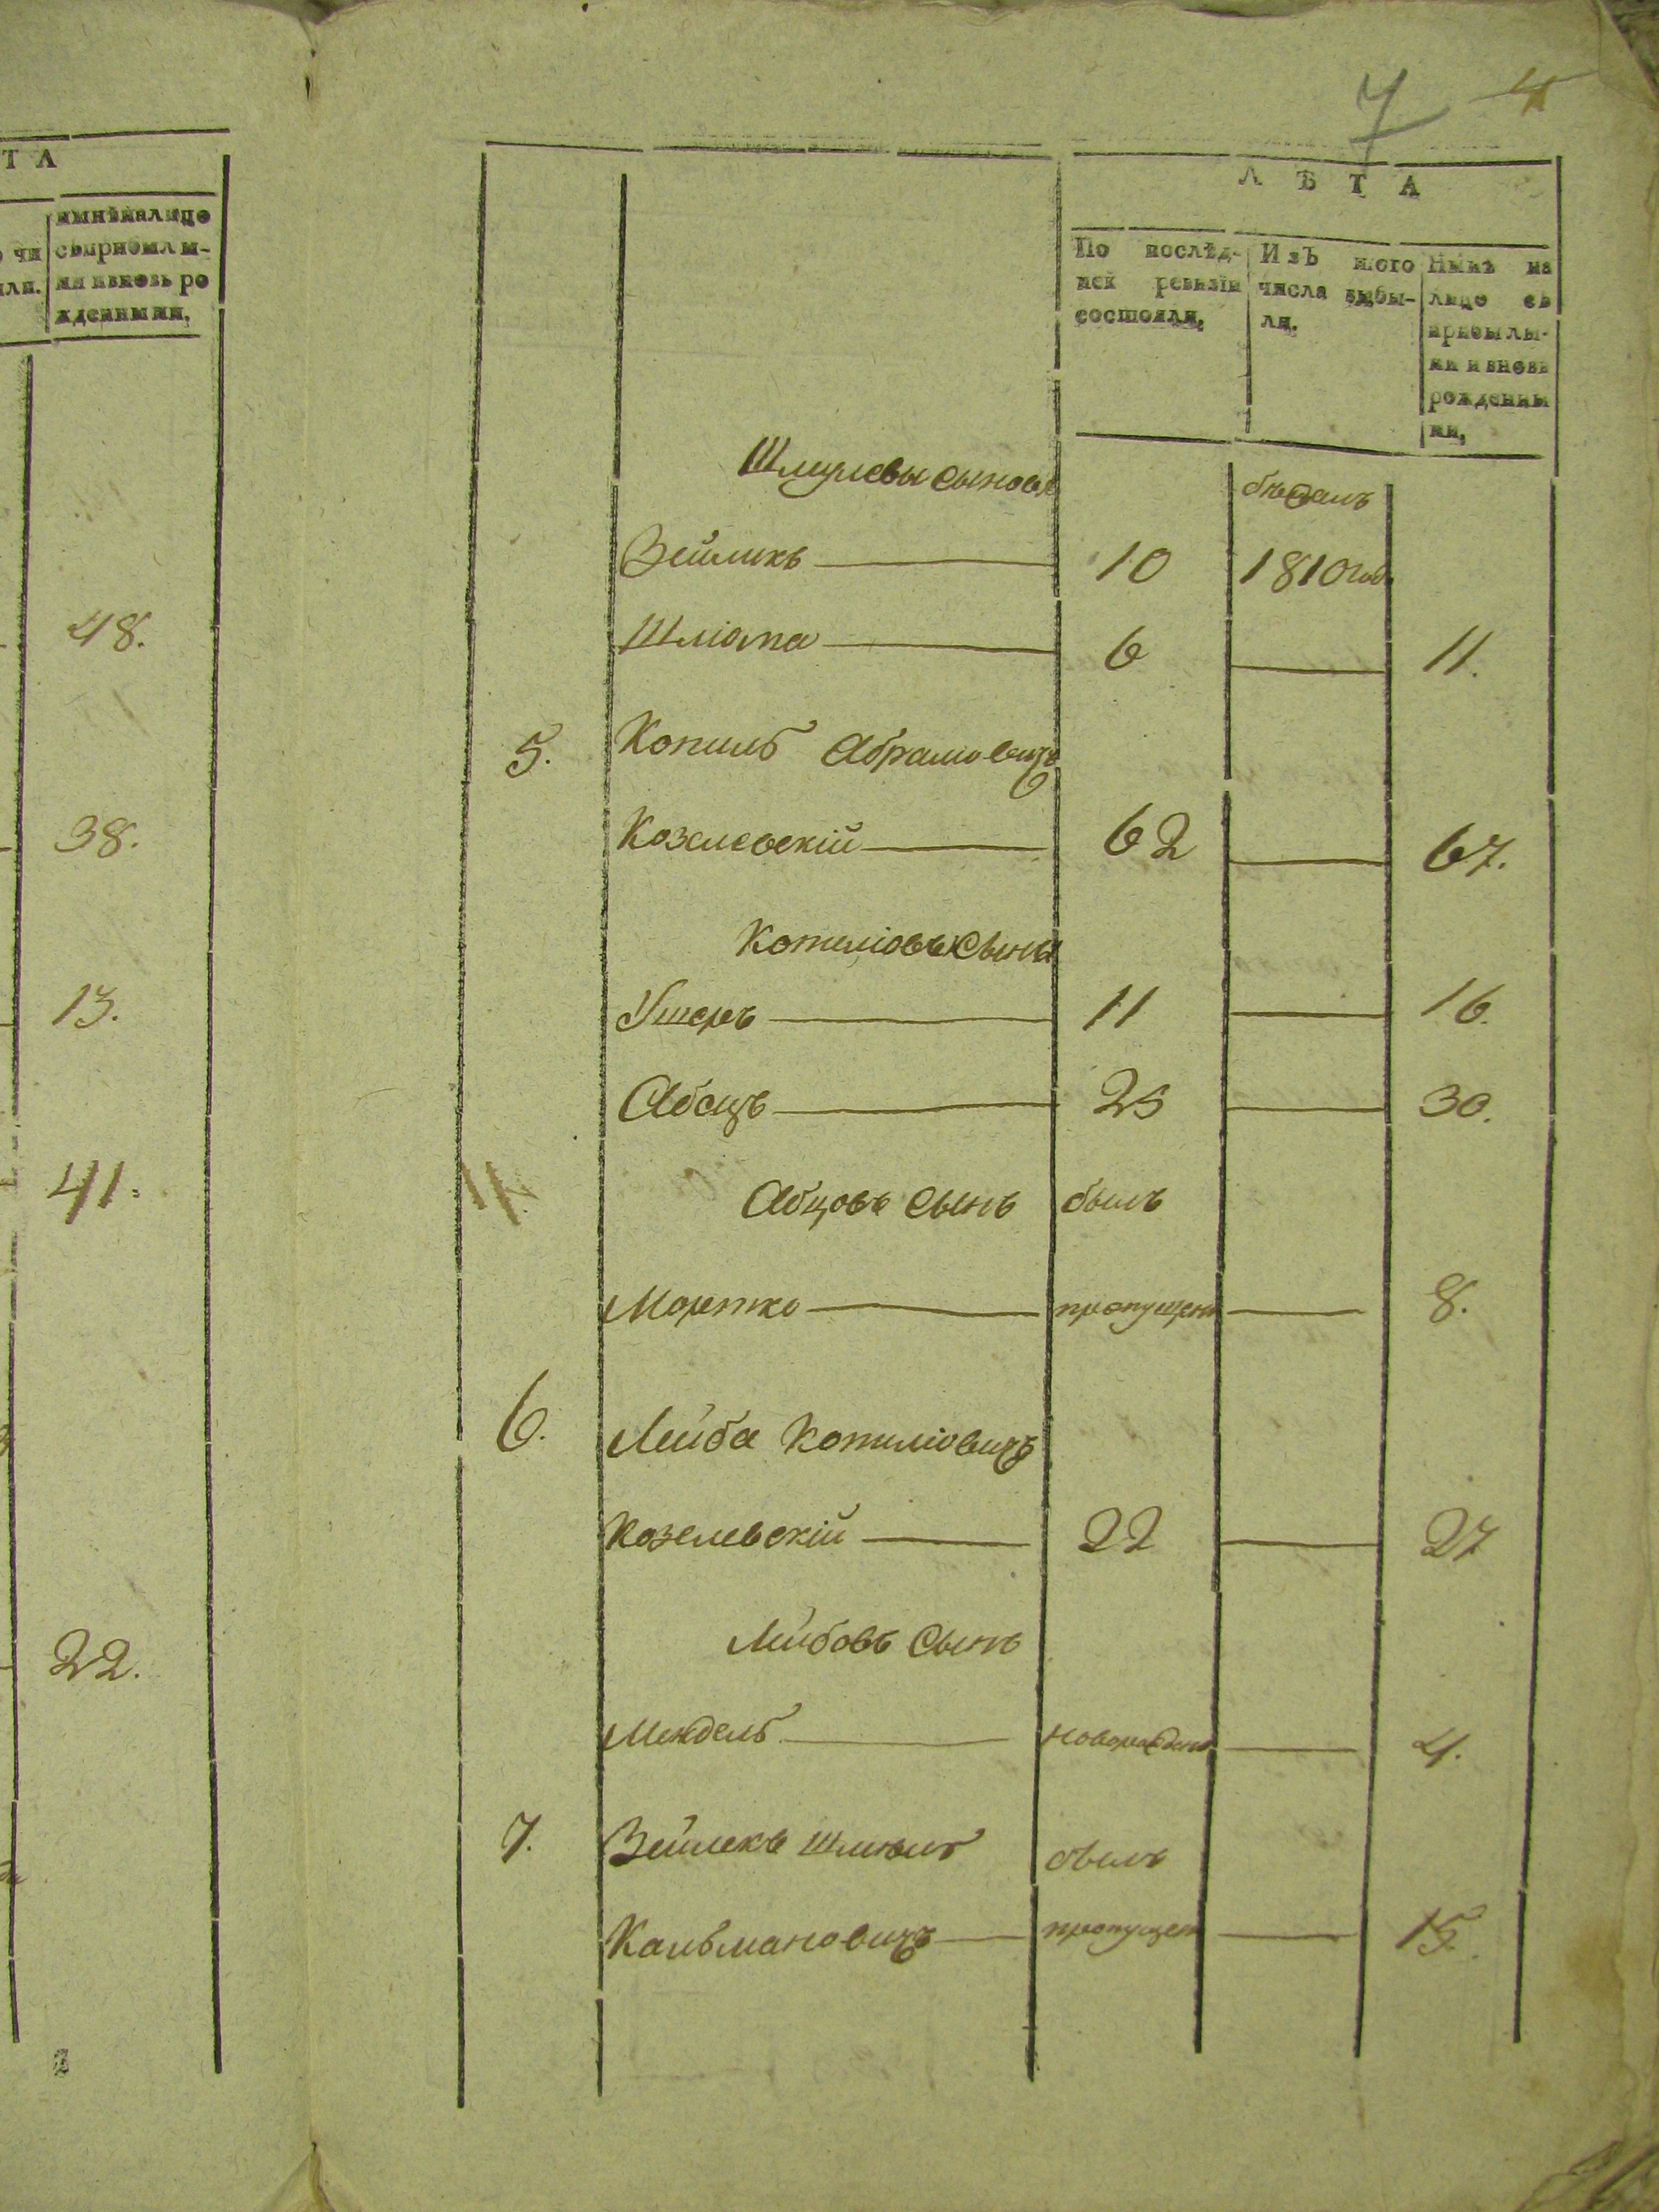 Т А
чи
или.
нынѣ на лицо
съ прибылы-
ми и вновь ро
жденными,
48.
38.
13.
41.
22.
7 4
Л Ѣ Т А
По послѣд-
ней ревизіи
состояли,
Изъ того
числа выбы-
ли.
Нынѣ на
лицо съ
прибылы-
ми и вновь
рожденны
ми,
Шмулевы сыновя
бѣжалъ
Зейликъ 10 1810 год
Шліома 6 11.
5. Копиль Абрамовичъ
Козелевскій 62 67.
Копиліовы Сыны
Ушеръ 11 16.
Абецъ 25 30.
Абцовъ Сынъ былъ
Мортко пропущен 8.
6. Лейба Копиліовичъ
Козелевскій 22 27
Лейбовъ Сынъ
Мендель новорожден 4.
7. Зейлекъ Шмюль былъ
Кальмановичъ пропущен 15.